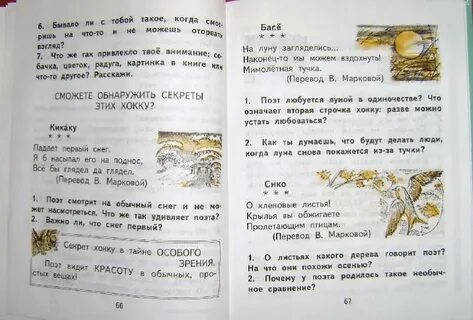 6. Бывало ли с тобой такое, когда смот-
ришь на что-то и не можешь оторвать
взгляд?
7. Что же так привлекло твоё внимание: со-
бачка, цветок, радуга, картинка в книге или
что-то другое? Расскажи.
СМОЖЕТЕ ОБНАРУЖИТЬ СЕКРЕТЫ
ЭТИХ ХОККУ?
Кикаку
* * *
Падает первый снег.
Я б насыпал его на поднос,
Всё бы глядел да глядел.
(Перевод В. Марковой)
1. Поэт смотрит на обычный снег и не мо-
жет насмотреться. Что же так удивляет поэта?
2. Важно ли, что снег первый?
Секрет хокку в тайне ОСОБОГО
ЗРЕНИЯ.
Поэт видит КРАСОТУ в обычных, про-
стых вещах!
66
Басё
* * *
На луну загляделись...
Наконец-то мы можем вздохнуть!
Мимолётная тучка.
(Перевод В. Марковой)
1. Поэт любуется луной в одиночестве? Что
означает вторая строчка хокку: разве можно
устать любоваться?
2. Как ты думаешь, что будут делать люди,
когда луна снова покажется из-за тучки?
Сико
* * *
О кленовые листья!
Крылья вы обжигаете
Пролетающим птицам.
(Перевод В. Марковой)
1. О листьях какого дерева говорит поэт?
На что они похожи осенью?
2. Почему у поэта родилось такое необыч-
ное сравнение?
67